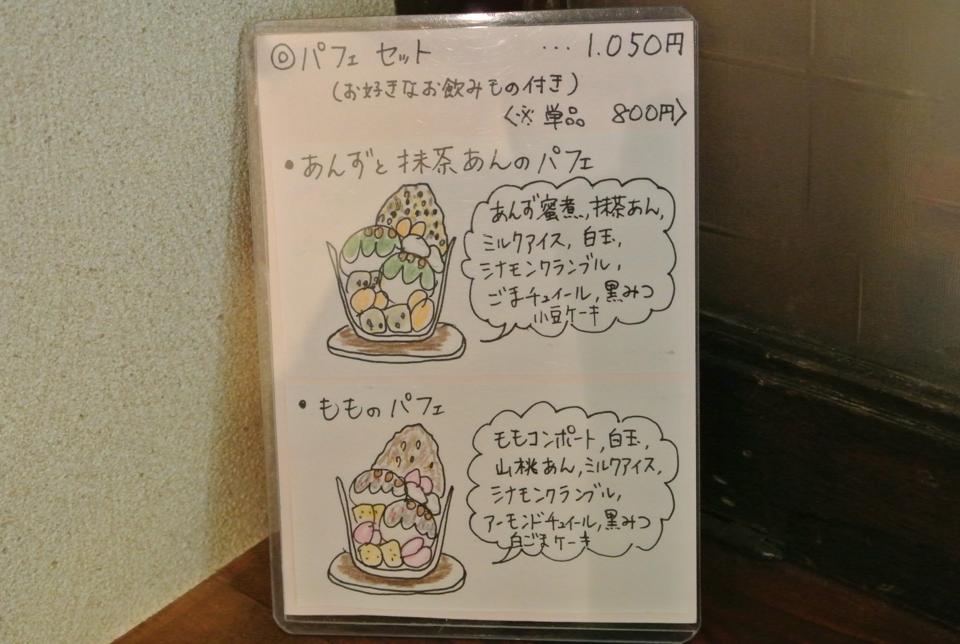 ◎パフェ セット …1.050円
(お好きなお飲みもの付き)
〈※ 単品 800円〉
・あんずと抹茶あんのパフェ
あんず蜜煮,抹茶あん,
ミルクアイス, 白玉,
シナモンクランブル,
ごまチュイール,黒みつ
小豆ケーキ
・もものパフェ
モモコンポート,白玉,
山桃あん,ミルクアイス,
シナモンクランブル,
アーモンドチュイール,黒みつ
白ごまケーキ